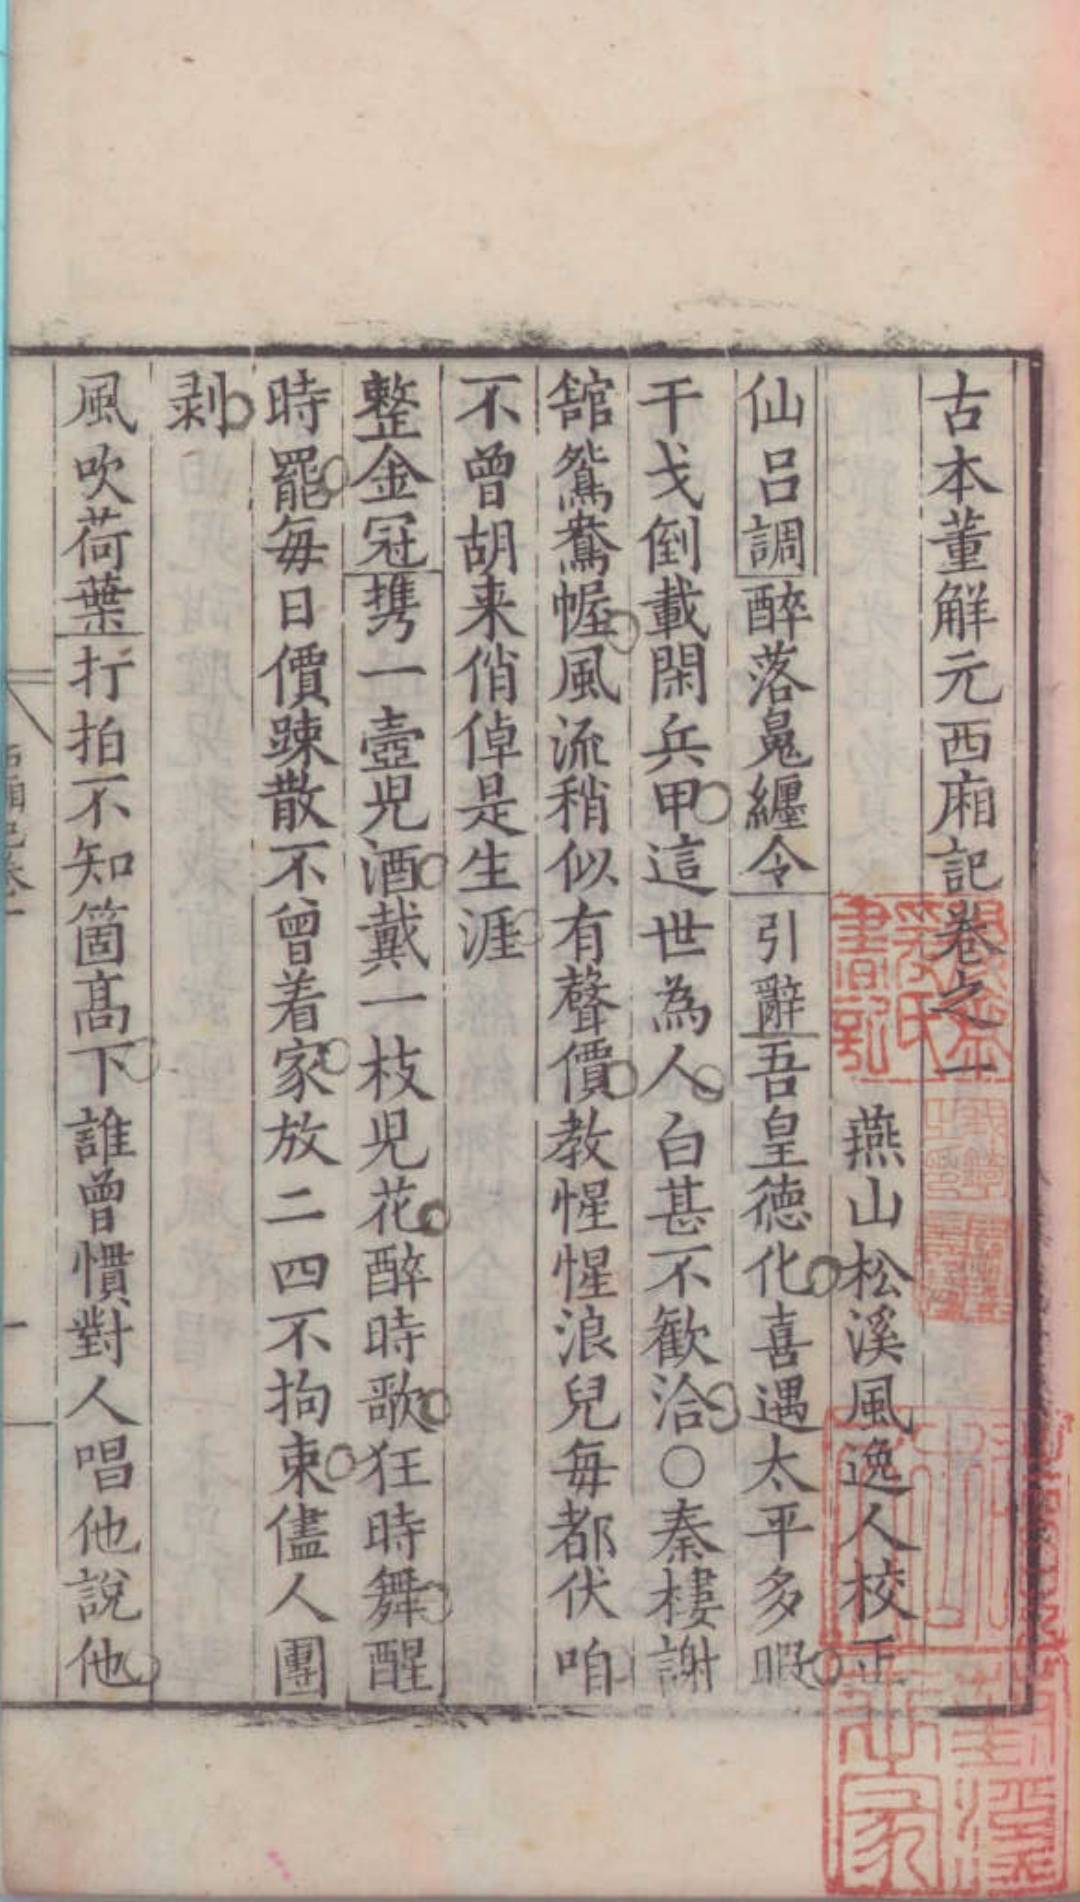 古本董解元西廂記卷之一
燕山松溪風逸人校正
仙呂調醉落䰟纏令引辭吾皇德化喜遇太平多暇
干戈倒載閑兵甲這世為人白甚不歡洽○秦樓謝
舘鴛鴦幄風流稍似有聲價教惺惺浪兒每都伏咱
不曾胡来俏倬是生涯
整金冠携一壺児酒戴一枝児花醉時歌狂時舞醒
時罷每日價踈散不曾着家放二四不拘束儘人團
剥
風吹荷葉打拍不知箇高下誰曾慣對人唱他說他